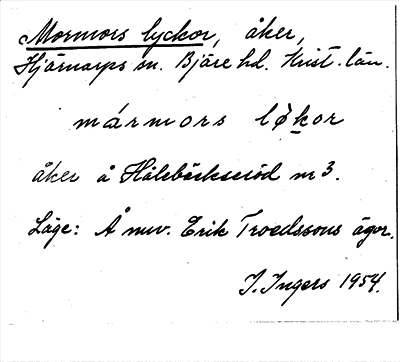 Mormors lyckor, åker,
Hjärnarps sn. Bjäre hd. Krist. län.
mármors løkor
åker å Hålebäckseröd nr 3.
Läge: Å nuv. Erik Troedssons ägor.
I. Ingers 1954.